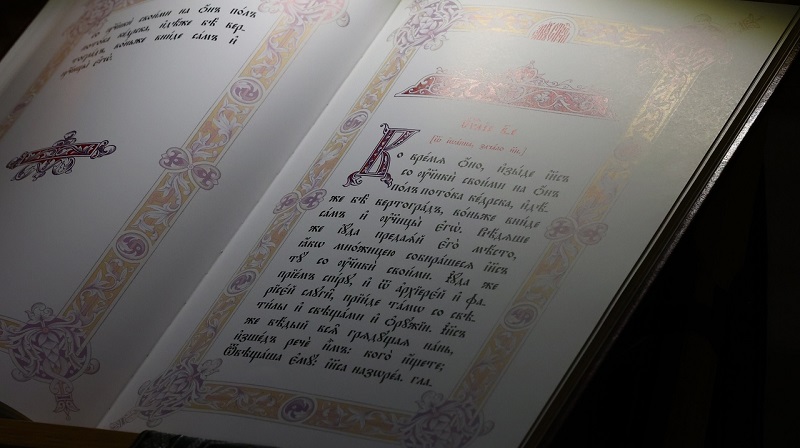 со ᲂу҆чн҃ки̑ свои́ми на ѻ҆́нъ по́лъ
пото́ка ке́дрска, и҆дѣ́же бѣ̀ вер-
тогра́дъ, въ́ньже вни́де са́мъ и҆
ᲂу҆чн҃цы̀ є҆гѡ̀.
Во вре́мѧ ѻ҆́но, и҆зы́де і҆и҃съ
со ᲂу҆чн҃ки̑ свои́ми на ѻ҆́нъ
по́лъ пото́ка ке́дрска, и҆дѣ́-
же бѣ̀ вертогра́дъ, во́ньже вни́де
са́мъ и҆ ᲂу҆чн҃цы̀ є҆гѡ̀. Вѣ́дѧше
же і҆ꙋ́да предаѧ́й є҆го̀ мѣ́сто,
ꙗ҆́кѡ мно́жицею собира́шесѧ і҆и҃съ
тꙋ̀ со ᲂу҆чн҃ки̑ свои́ми. І҆ꙋ́да же
прїе́мъ спі́рꙋ, и҆ ѿ а҆рхїерє́й и҆ фа-
рїсє́й слꙋги̑, прїи́де та́мѡ со свѣ-
ти́лы и҆ свѣща́ми и҆ ѻ҆рꙋ̑жїи. І҆и҃съ
же вѣ́дый всѧ̑ грѧдꙋ̑щаѧ на́нь,
и҆зше́дъ речѐ и҆̀мъ: кого̀ и҆́щете;
Ѿвѣща́ша є҆мꙋ̀: і҆и҃са назѡре́а. гл҃а